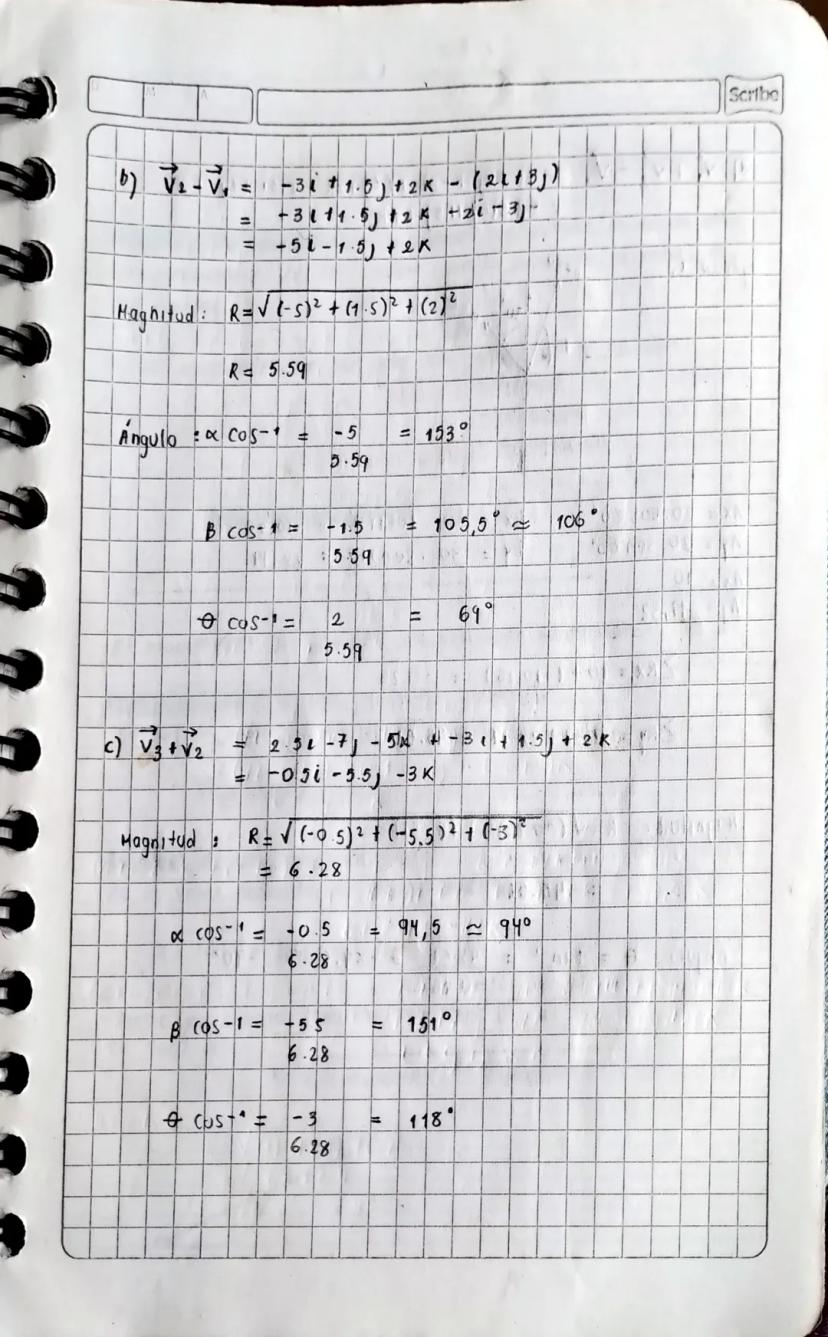 Scribe
b) V₂ - V₁ = -3i + 1.5j + 2k - (2i+3j)
= -3i+1.5j+2k -2i-3j
= -5i-1.5j+2k
Magnitud: R=√(-5)²+(1.5)²+(2)²
R= 5.59
Ángulo : α cos-1 = -5 = 153°
5.59
β cos-1 = -1.5 = 105,5° ≈ 106°
5.59
θ cos-1 = 2 = 69°
5.59
c) V₃+V₂ = 2.5i -7j - 5k + -3i + 1.5j + 2k
= -0.5i -5.5j -3k
Magnitud : R=√(-0.5)²+(-5.5)²+(-3)²
= 6.28
α cos-1 = -0.5 = 94,5 ≈ 94°
6.28
β cos-1 = -5.5 = 151°
6.28
θ cos-1 = -3 = 118°
6.28